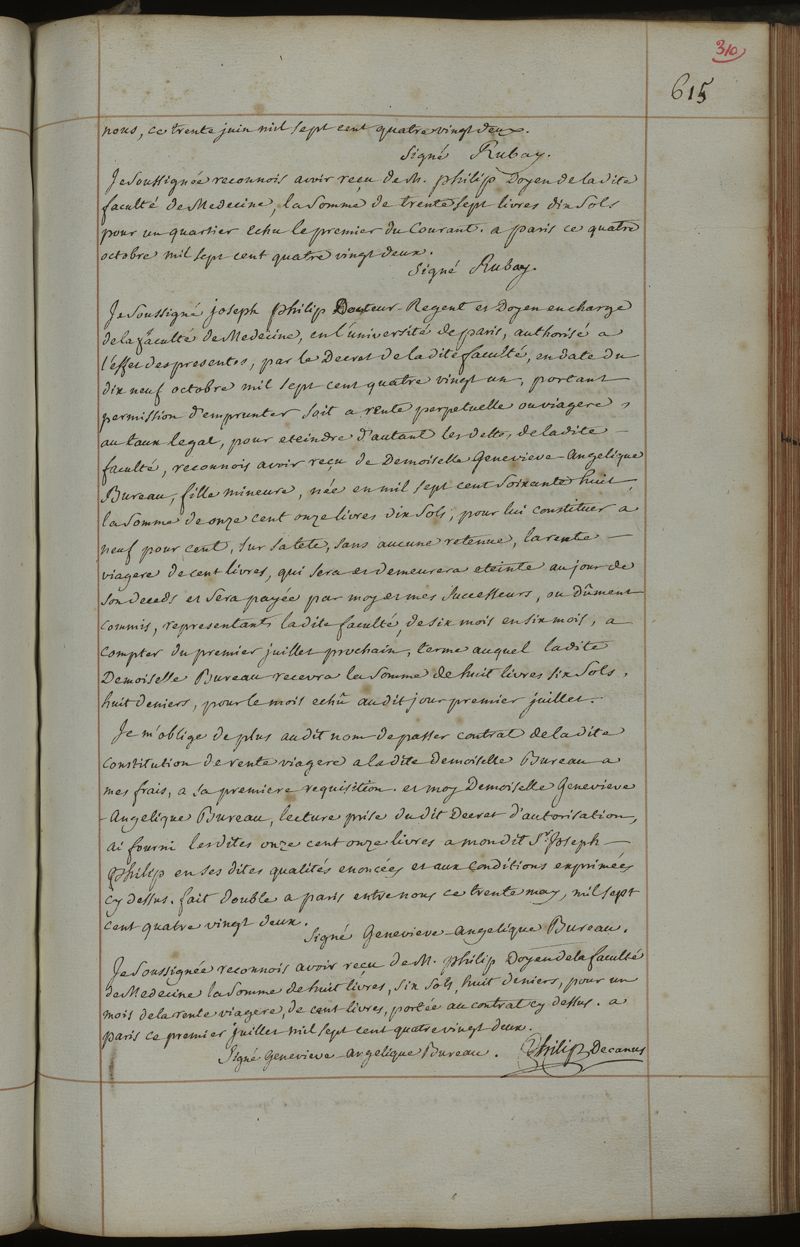 310
615
nous, ce trente juin mil sept cent quatre vingt deux.
Signé Rubay.
Je Soussignée reconnois avoir reçu de M. philip Doyen de la dite
faculté de Medecine, la Somme de trente sept livres dix Sols
pour un quartier echu le premier du Courant. a paris ce quatre
octobre mil sept cent quatre vingt deux.
Signé Rubay.
Je Soussigné joseph philip Docteur-Regent et Doyen en charge
de la faculté de Medecine, en l'université de paris, authorisé a
l'effet des presentes, par le Decret de la dite faculté, en date du
dix neuf octobre mil sept cent quatre vingt un, portant
permission d'emprunter soit a rente perpetuelle ou viagere,
au taux legal, pour eteindre d'autant les dettes de la dite
faculté, reconnois avoir reçu de Demoiselle Genevieve-Angelique
Bureau, fille mineure, née en mil sept cent soixante huit,
la Somme de onze cent onze livres dix Sols, pour lui constituer a
neuf pour cent, sur sa tete, sans aucune retenue, la rente
viagere de cent livres, qui sera et demeurera eteinte au jour de
son deceds et sera payée par moy et mes Successeurs, ou dûment
commis, representants la dite faculté, de six mois en six mois, a
compter du premier juillet prochain, terme auquel la dite
Demoiselle Bureau recevra la Somme de huit livres six Sols,
huit deniers, pour le mois echû au dit jour premier juillet.
Je m'oblige de plus au dit nom de passer contrat de la dite
constitution de rente viagere a la dite demoiselle Bureau a
mes frais, a sa premiere requisition. et moy Demoiselle Genevieve
-Angelique Bureau, lecture prise du dit Decret d'autorisation,
ai fourni les dites onze cent onze livres a mon dit Sr. Joseph
philip en ses dites qualités enoncées et aux Conditions exprimées
cy dessus. fait double a paris entre nous ce trente may, mil sept
cent quatre vingt deux.
Signé Genevieve-Angelique Bureau.
Je Soussignée reconnois avoir reçu de M. philip Doyen de la faculté
de Medecine la Somme de huit livres, six Sols, huit deniers, pour un
mois de la rente viagere, de cent livres, portée au contrat cy dessus. a
paris ce premier juillet mil sept cent quatre vingt deux.
Signé Genevieve-Angelique Bureau. Philip Decanus